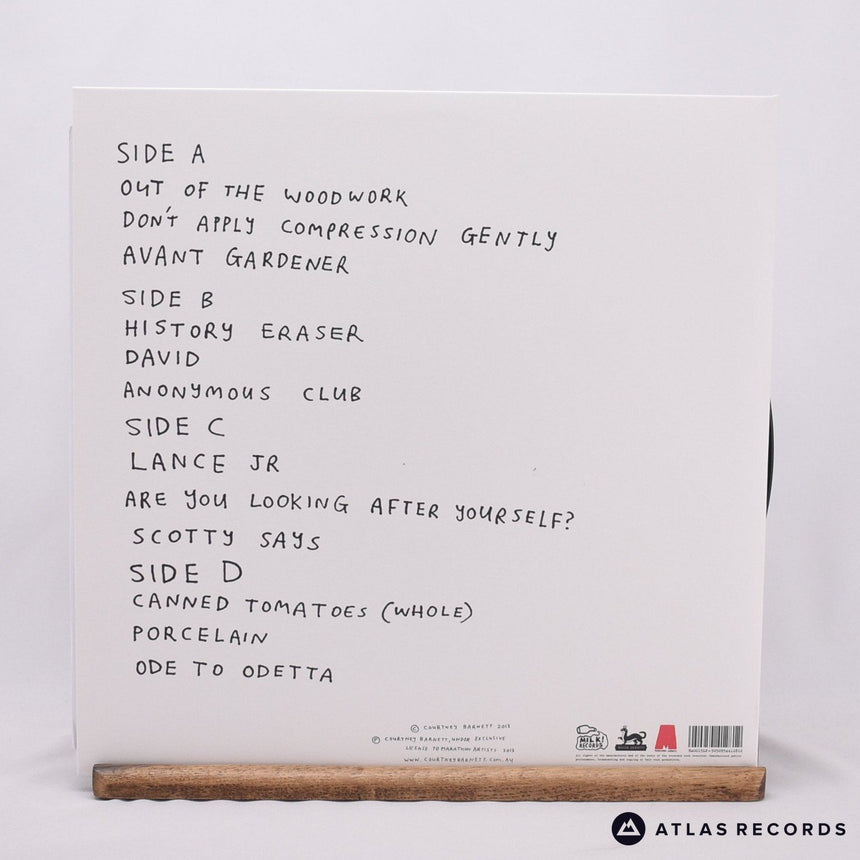 SIDE A
OUT OF THE WOODWORK
DON'T APPLY COMPRESSION GENTLY
AVANT GARDENER
SIDE B
HISTORY ERASER
DAVID
ANONYMOUS CLUB
SIDE C
LANCE JR
ARE YOU LOOKING AFTER YOURSELF?
SCOTTY SAYS
SIDE D
CANNED TOMATOES (WHOLE)
PORCELAIN
ODE TO ODETTA
© COURTNEY BARNETT 2013
℗ COURTNEY BARNETT, UNDER EXCLUSIVE
LICENSE TO MARATHON ARTISTS 2013
WWW.COURTNEYBARNETT.COM.AU
MILK!
RECORDS
ATLAS RECORDS